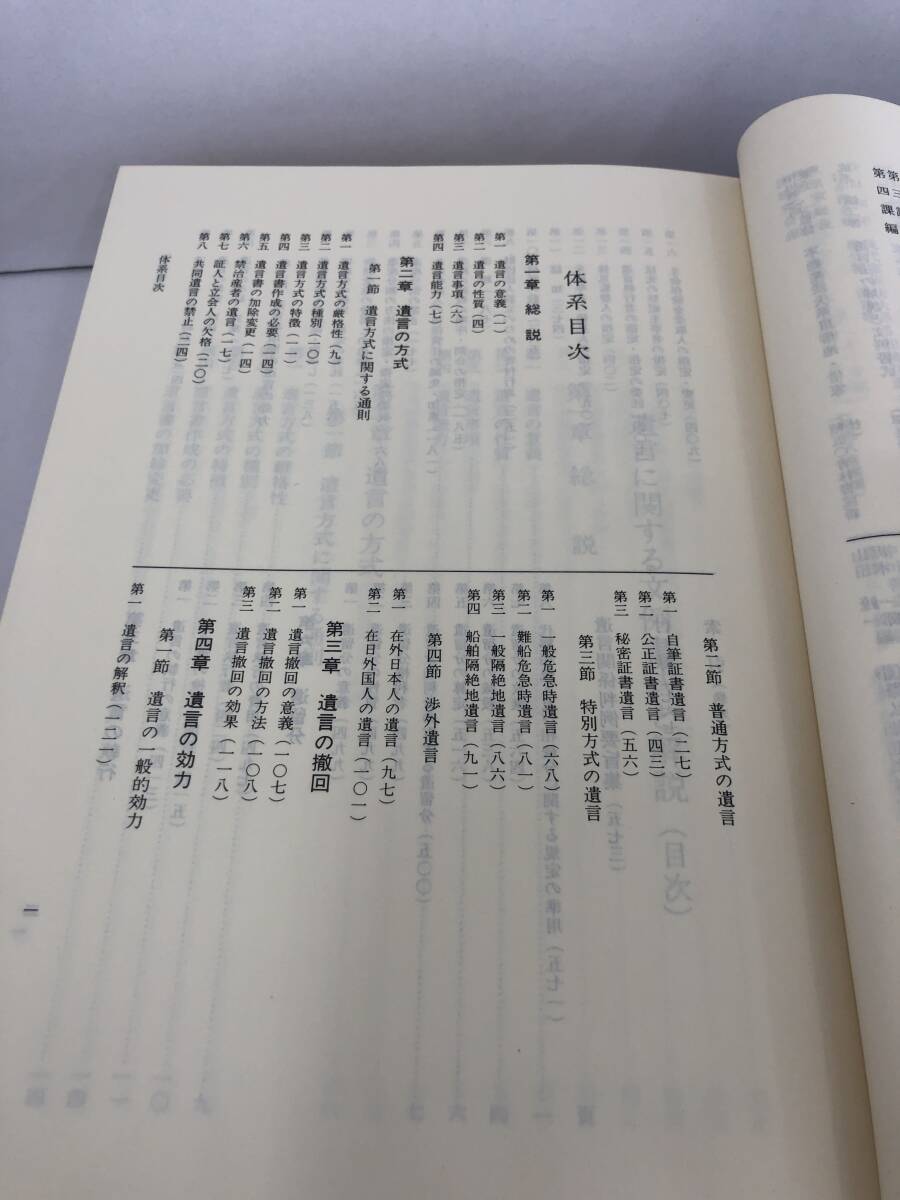 体系目次
第一章 総説
第一 遺言の意義(一)
第二 遺言の性質(四)
第三 遺言事項(六)
第四 遺言能力(七)
第二章 遺言の方式
第一節 遺言方式に関する通則
第一 遺言方式の厳格性(九)
第二 遺言方式の種別(一〇)
第三 遺言方式の特徴(一一)
第四 遺言書作成の必要(一四)
第五 遺言書の加除変更(一四)
第六 禁治産者の遺言(一七)
第七 証人と立会人の欠格(二〇)
第八 共同遺言の禁止(二四)
第二節 普通方式の遺言
第一 自筆証書遺言(二七)
第二 公正証書遺言(四三)
第三 秘密証書遺言(五六)
第三節 特別方式の遺言
第一 一般危急時遺言(六八)
第二 難船危急時遺言(八一)
第三 一般隔絶地遺言(八六)
第四 船舶隔絶地遺言(九一)
第四節 渉外遺言
第一 在外日本人の遺言(九七)
第二 在日外国人の遺言(一〇一)
第三章 遺言の撤回
第一 遺言撤回の意義(一〇七)
第二 遺言撤回の方法(一〇八)
第三 遺言撤回の効果(一一八)
第四章 遺言の効力
第一節 遺言の一般的効力
第一 遺言の解釈(一二一)
体系目次
一